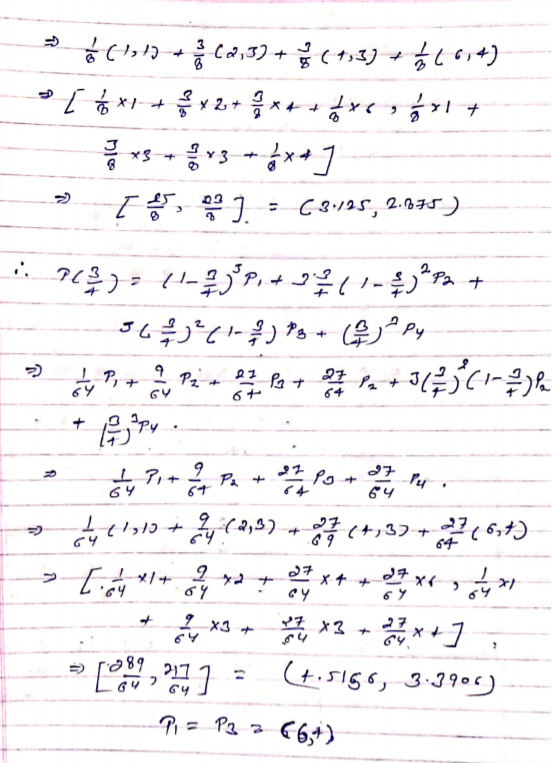 ⇒ 1/8 (1,1) + 3/8 (2,3) + 3/8 (4,3) + 1/8 (6,4)
⇒ [ 1/8 ×1 + 3/8 ×2 + 3/8 ×4 + 1/8 ×6 , 1/8 ×1 +
3/8 ×3 + 3/8 ×3 + 1/8 ×4 ]
⇒ [ 25/8 , 23/8 ] = (3.125, 2.875)
∴ P(3/4) = (1-3/4)³ P₁ + 3·3/4 (1-3/4)² P₂ +
3(3/4)² (1-3/4) P₃ + (3/4)³ P₄
⇒ 1/64 P₁ + 9/64 P₂ + 27/64 P₃ + 27/64 P₂ + 3(3/4)² (1-3/4) P₂
+ (3/4)³ P₄ .
⇒ 1/64 P₁ + 9/64 P₂ + 27/64 P₃ + 27/64 P₄ .
⇒ 1/64 (1,1) + 9/64 (2,3) + 27/64 (4,3) + 27/64 (6,4)
⇒ [ 1/64 ×1 + 9/64 ×2 + 27/64 ×4 + 27/64 ×6 , 1/64 ×1
+ 9/64 ×3 + 27/64 ×3 + 27/64 ×4 ] ,
⇒ [ 289/64 , 217/64 ] = (4.5156, 3.3906)
P₁ = P₃ = (6,4)